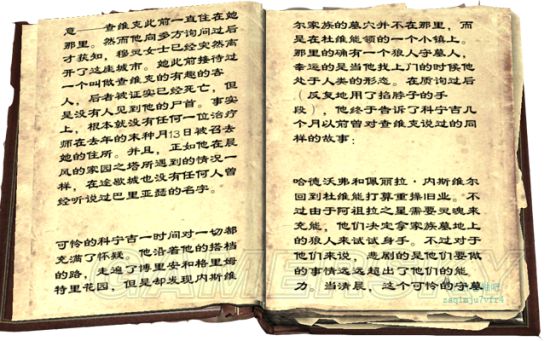 意——查维克此前一直住在她
那里。然而他向多方询问过后
才获知，穆灵女士已经突然离
开了这座城市。她此前接待过
一个叫做查维克的有趣的客
人，后者被证实已经死亡，但
是没有人见到他的尸首。事实
上，根本就没有任何一位治疗
师在去年的末种月13日被召去
她的住所。并且，正如他在晨
风的家园之塔所遇到的情况一
样，在途歌城也没有任何人曾
经听说过巴里亚瑟的名字。
可怜的科宁吉一时间对一切都
充满了怀疑。他沿着他的搭档
的路，走遍了博里安和格里姆
特里花园，但是却发现内斯维
尔家族的墓穴并不在那里，而
是在杜维能领的一个小镇上。
那里的确有一个狼人守墓人，
幸运的是当他找上门的时候他
处于人类的形态。在质询过后
（反复地用了掐脖子的手
段），他终于告诉了科宁吉几
个月以前曾对查维克说过的同
样的故事：
哈德沃弗和佩丽拉·内斯维尔
回到杜维能打算重操旧业。不
过由于阿祖拉之星需要灵魂来
充能，他们决定拿家族墓地上
的狼人来试试身手。不过对于
他们来说，悲剧的是他们要做
的事情远远超出了他们的能
力。当清晨，这个可怜的守墓
GAMERSKY
zaq1mju7vfr4